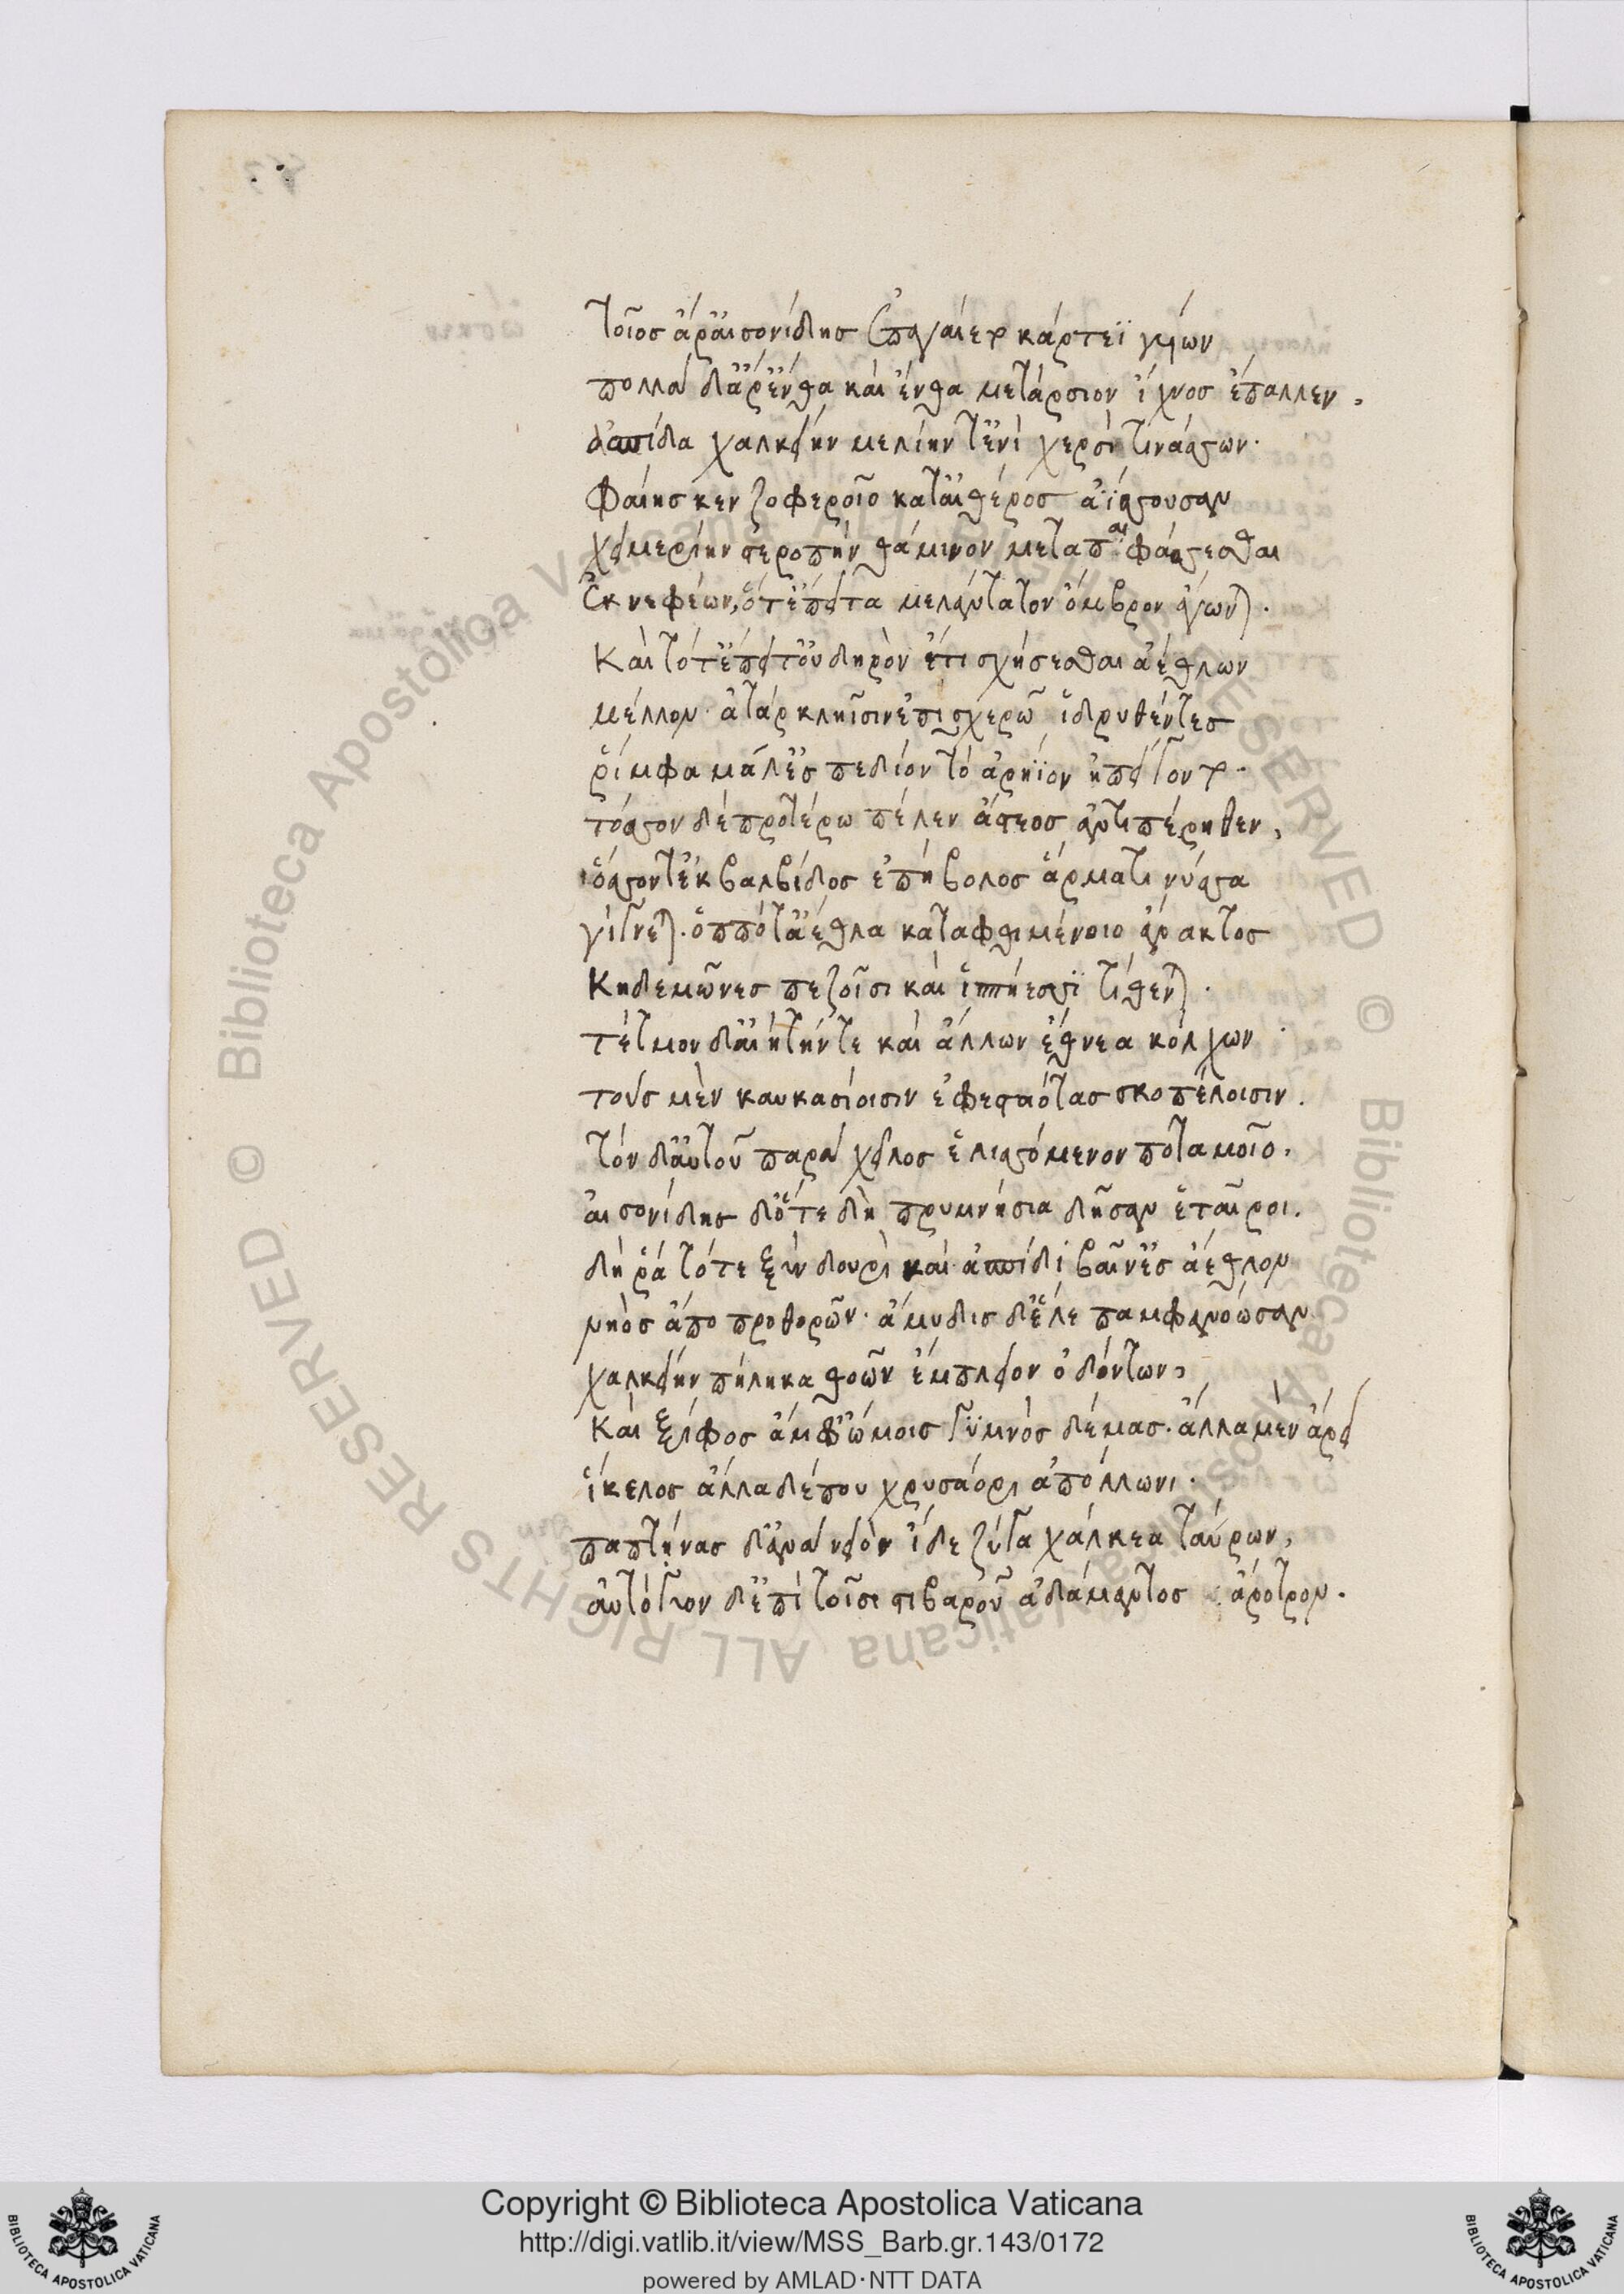 τοῖος ἄρ' αἰσονίδης ἐπαγαίετο κάρτεϊ γυίων
πολλὰ δ' ἄρ' ἔνθα καὶ ἔνθα μετάρσιον ἴχνος ἔπαλλεν,
ἀσπίδα χαλκείην μελίην τ' ἐνὶ χερσὶ τινάσσων·
Φαίης κεν ζοφεροῖο κατ' αἰθέρος ἀΐσσουσαν
χειμερίην στεροπὴν θάμινον μεταπαιφάσσεσθαι
ἐκ νεφέων, ὅτ' ἔπειτα μελάντατον ὄμβρον ἄγωνται.
Καὶ τότ' ἔπειτ' οὐ δηρὸν ἔτι σχήσεσθαι ἀέθλων
μέλλον· ἀτὰρ κληῖσιν ἐπισχερῶ ἱδρυθέντες
ῥίμφα μάλ' ἐς πεδίον τὸ ἀρήϊον ἠπείγοντο·
τόσσον δὲ προτέρω πέλεν ἄστεος ἀντιπέρηθεν,
ὅσσον τ' ἐκ βαλβίδος ἐπήβολος ἅρματι νύσσα
γίγνεται. ὁππότ' ἄεθλα καταφθιμένοιο ἄνακτος
Κηδεμῶνες πεζοῖσι καὶ ἱππήεσσϊ τίθενται.
τέτμον δ' αἰήτην τε καὶ ἄλλων ἔθνεα κόλχων
τοὺς μὲν καυκασίοισιν ἐφεσταότας σκοπέλοισιν.
τὸν δ' αὐτοῦ παρὰ χεῖλος ἑλισσόμενον ποταμοῖο.
αἰσονίδης δ' ὅτε δὴ πρυμνήσια δῆσαν ἑταῖροι.
δή ῥα τότε ξὺν δουρὶ καὶ ἀσπίδι βαῖν' ἐς ἄεθλον
νηὸς ἀποπροθορῶν· ἄμυδις δ' ἕλε παμφανόωσαν
χαλκείην πήληκα θοῶν ἔμπλειον ὀδόντων,
Καὶ ξίφος ἀμφ' ὤμοις γυμνὸς δέμας. ἄλλα μὲν ἄρει
ἴκελος ἄλλα δέ που χρυσάορι ἀπόλλωνι.
παπτήνας δ' ἀνὰ νειὸν ἴδε ζυγὰ χάλκεα ταύρων,
αὐτόγυον δ' ἐπὶ τοῖσι στιβαροῦ ἀδάμαντος ἄροτρον.
Copyright © Biblioteca Apostolica Vaticana
http://digi.vatlib.it/view/MSS_Barb.gr.143/0172
powered by AMLAD·NTT DATA